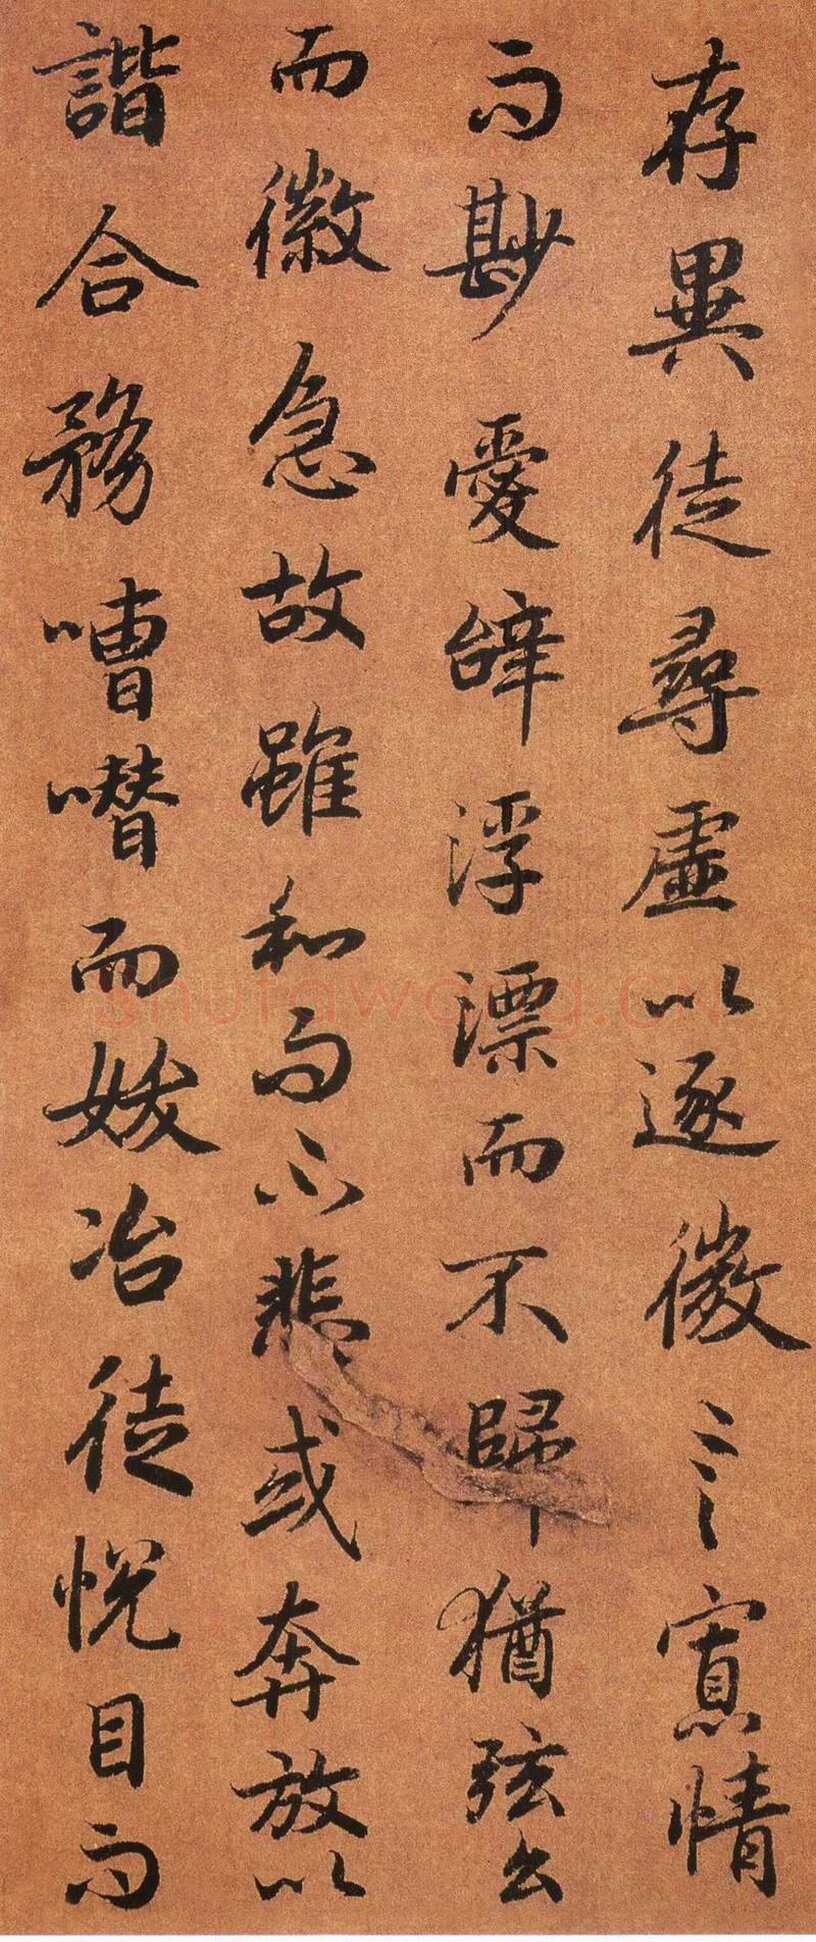 存異徒尋虛以逐微言寡情
而尠愛辝浮漂而不歸猶弦么
而徽急故雖和而不悲或奔放以
諧合務嘈囋而妖冶徒悅目而
shufawang.CN